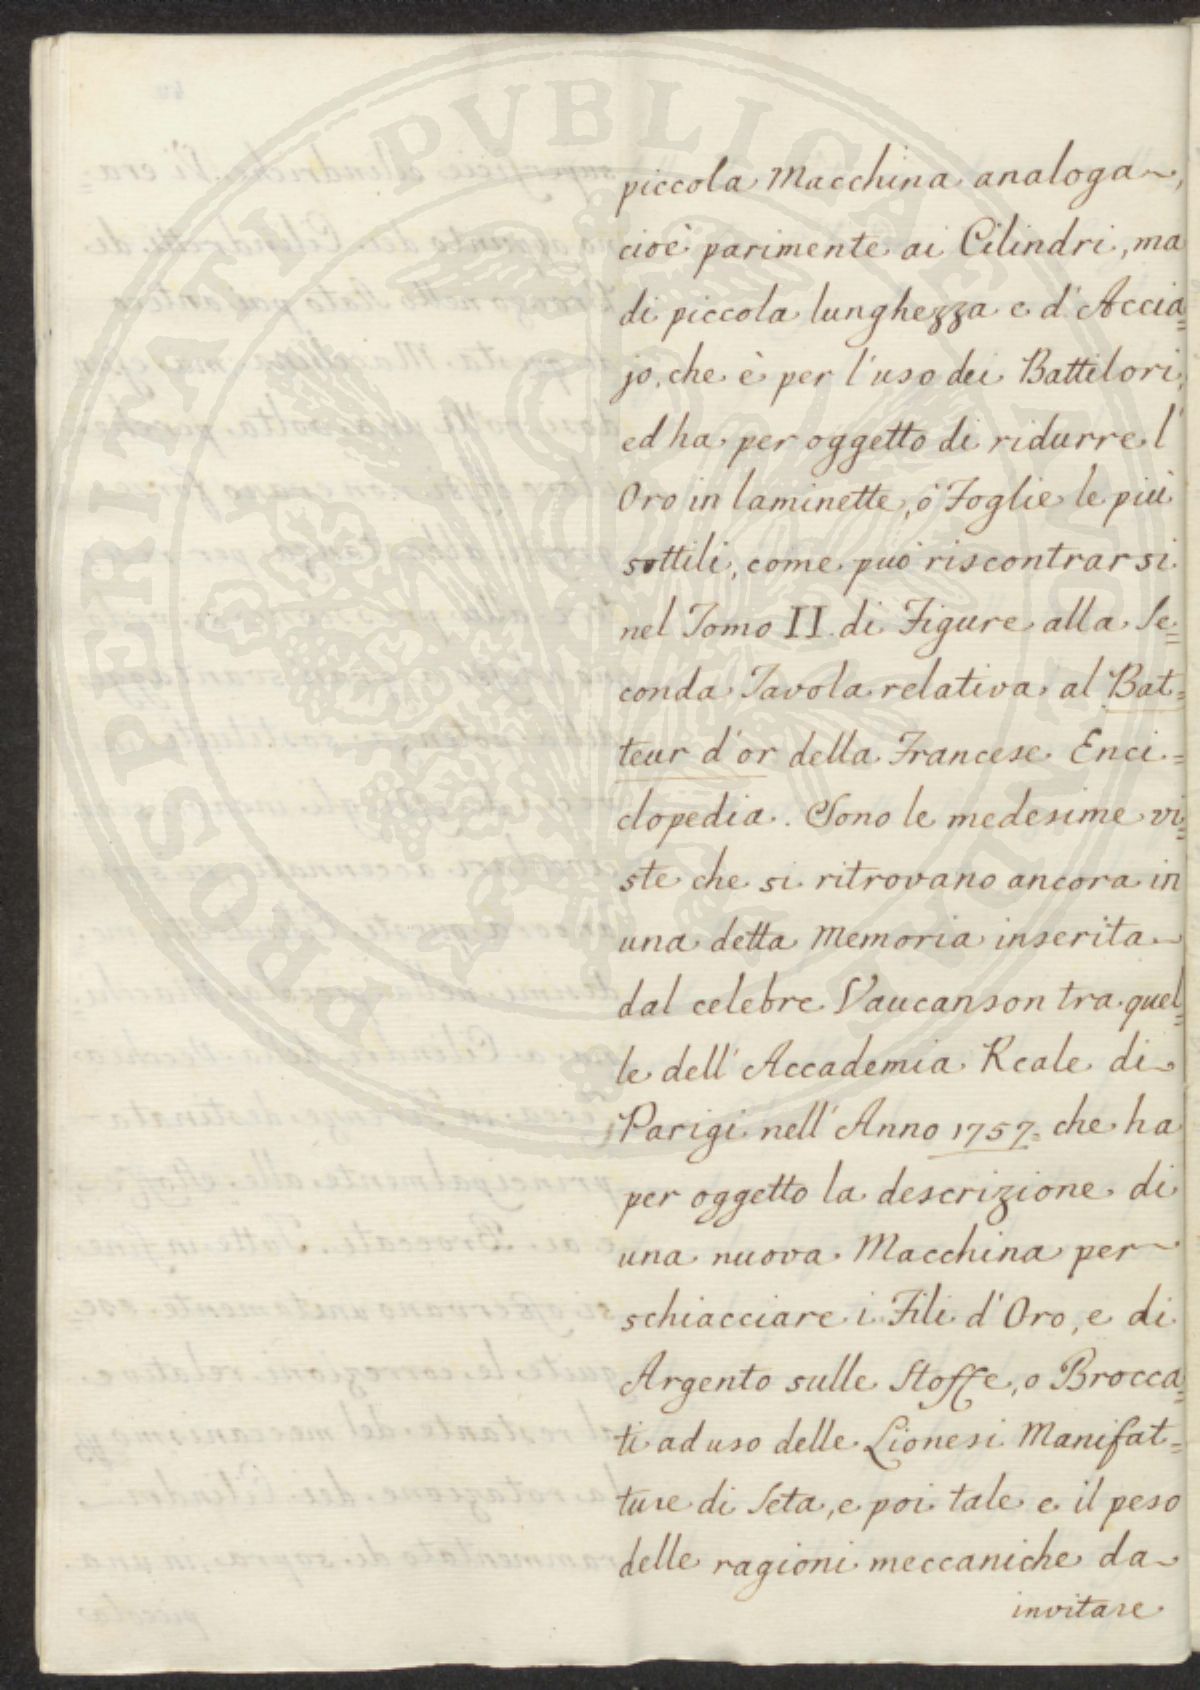 piccola Macchina analoga,
cioè parimente ai Cilindri, ma
di piccola lunghezza e d'Accia=
jo, che è per l'uso dei Battilori,
ed ha per oggetto di ridurre l'
Oro in laminette, ò Foglie le più
sottili, come può riscontrarsi
nel Tomo II. di Figure alla Se=
conda Tavola relativa al Bat=
teur d'or della Francese Enci=
clopedia. Sono le medesime vi=
ste che si ritrovano ancora in
una detta Memoria inserita
dal celebre Vaucanson tra quel=
le dell'Accademia Reale di
Parigi nell'Anno 1757. che ha
per oggetto la descrizione di
una nuova Macchina per
schiacciare i Fili d'Oro, e di
Argento sulle Stoffe, o Brocca=
ti ad uso delle Lionesi Manifat=
ture di Seta, e poi tale e il peso
delle ragioni meccaniche da
invitare
PROSPERITATI PUBLICAE AUGENDAE